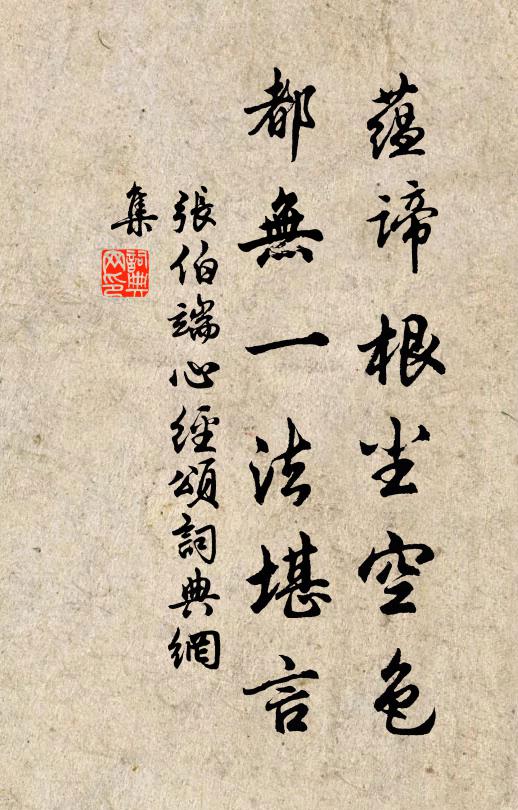 蕴諦根尘空色
都無一法堪言
張伯端心經頌詞典網
集
詞典
网印